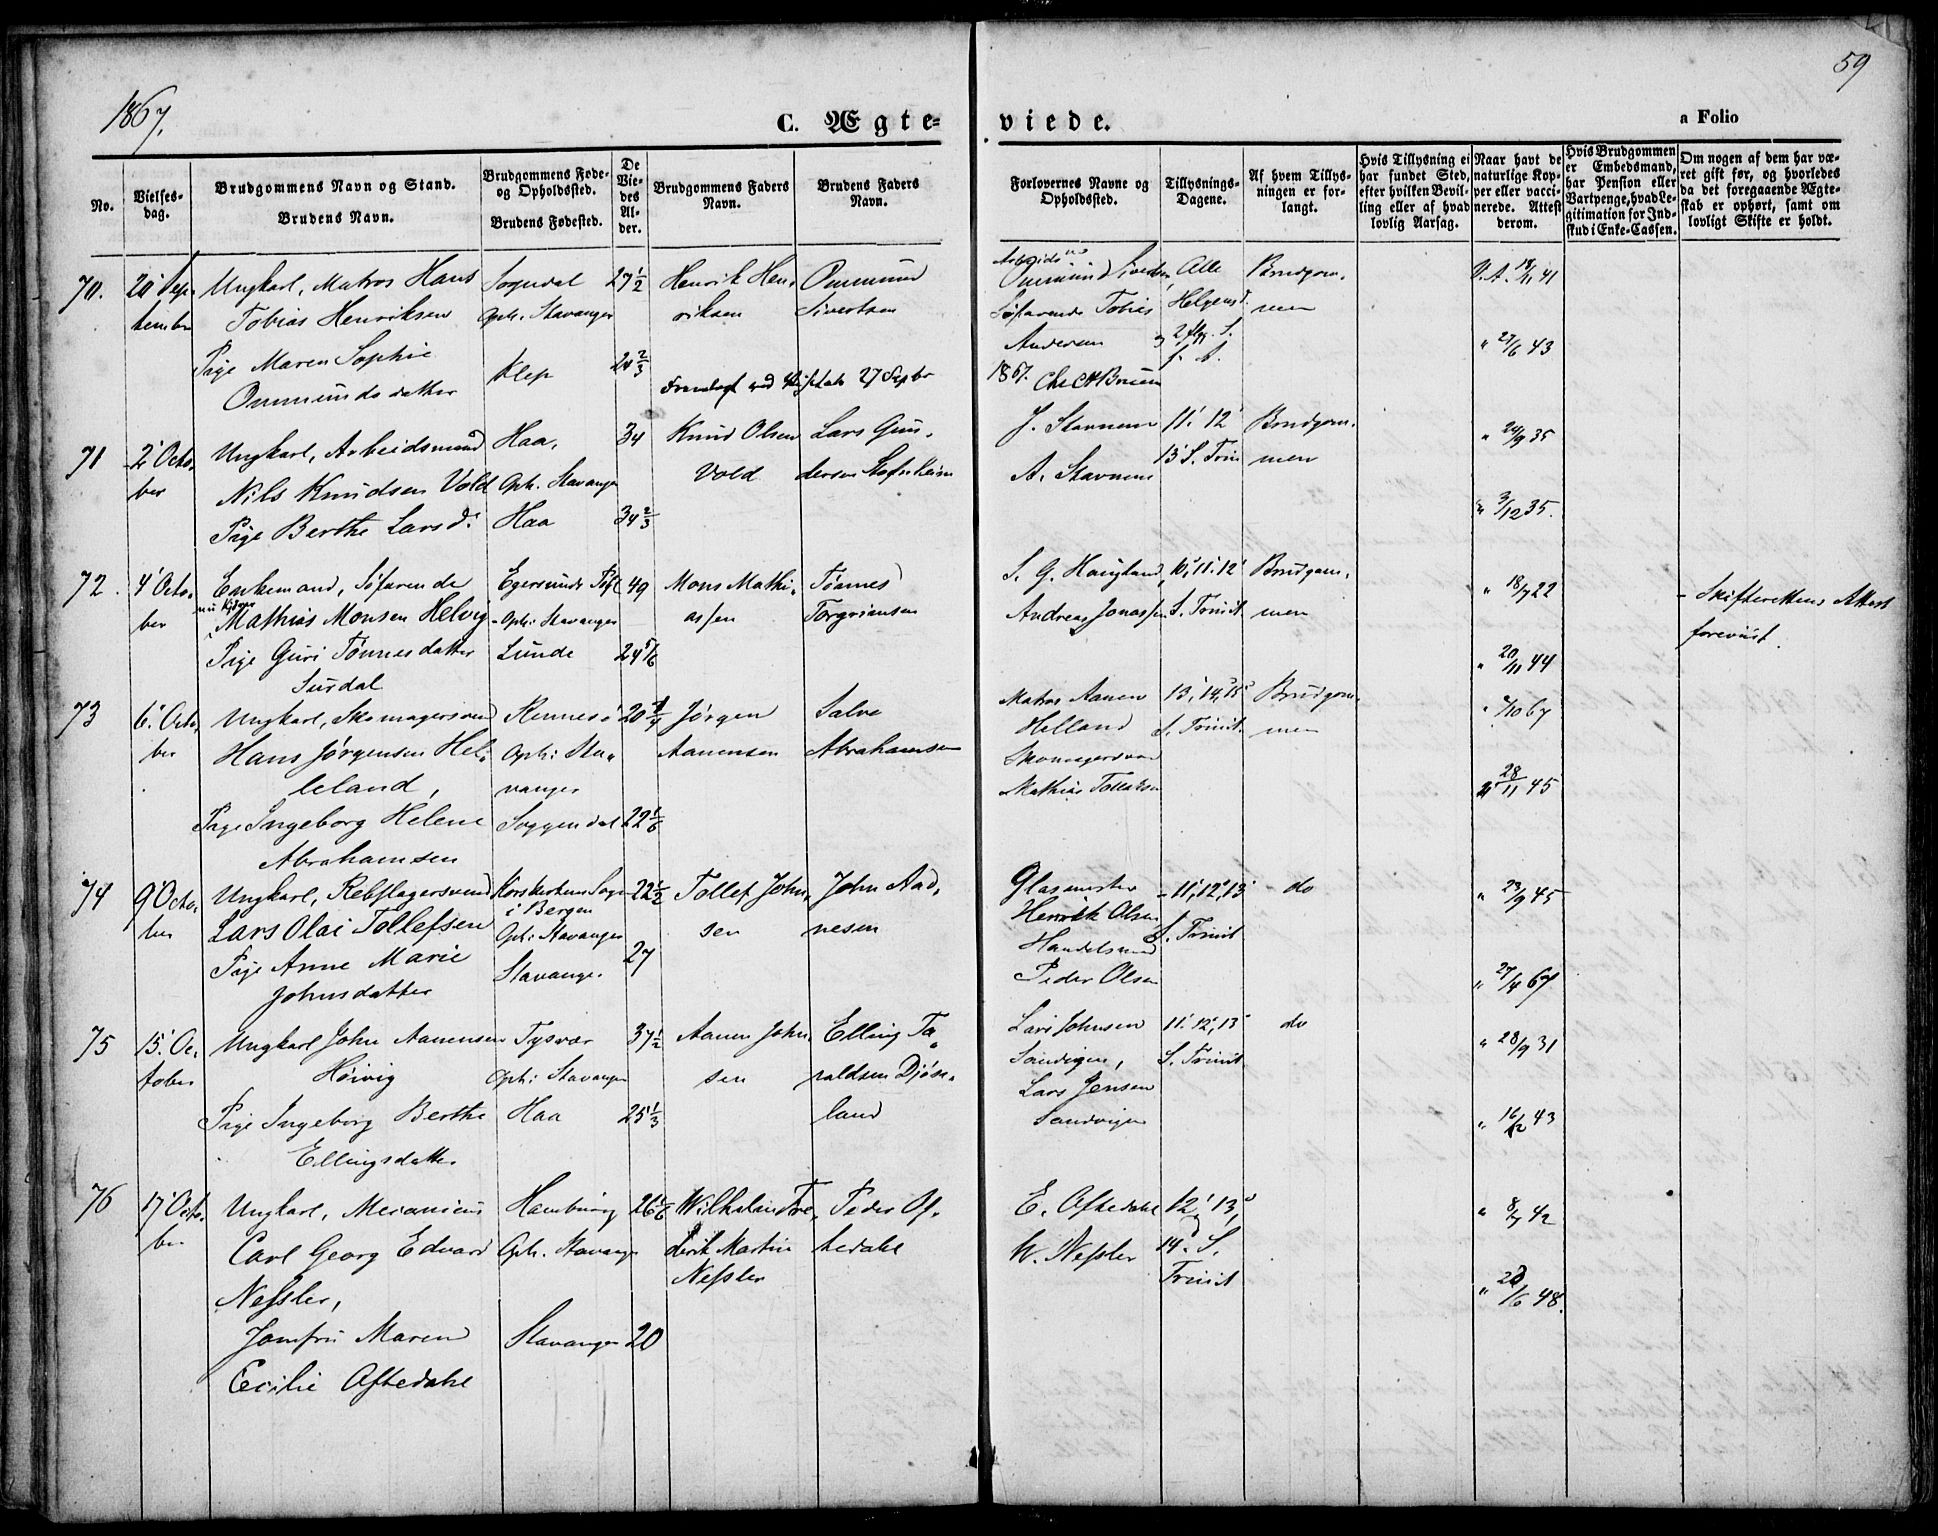 1867.
59
C. Ægte-
viede.
a Folio
No.
Vielses-
dag.
Brudgommens Navn og Stand.
Brudens Navn.
Brudgommens Føde-
og Opholdssted.
Brudens Fødested.
De
Vie-
des
Al-
der.
Brudgommens Faders
Navn.
Brudens Faders
Navn.
Forlovernes Navne og
Opholdssted.
Tillysnings-
Dagene.
Af hvem Tillys-
ningen er for-
langt.
Hvis Tillysning ei
har fundet Sted,
efter hvilken Bevil-
ling eller af hvad
lovlig Aarsag.
Naar havt de
naturlige Kop-
per eller vacci-
nerede. Attest
derom.
Hvis Brudgommen
er Embedsmand,
har Pension eller
Vartpenge, hvad Le-
gitimation for Ind-
skud i Enke-Cassen.
Om nogen af dem har væ-
ret gift før, og hvorledes
da det foregaaende Ægte-
skab er ophørt, samt om
lovligt Skifte er holdt.
70.
Sep-
tember
Ungkarl, Matros Hans
Tobias Henriksen
Pige Maren Sophie
Ommundsdatter
Sogndal
Oph. Stavanger
Klep
27 1/2
24 2/3
Henrik Hen-
riksen
Ommund
Sivertsen
Fremlagt ved Skiftet 27 Septbr
1867.
Ommund Sivertsen,
Søfarende Tobias
Andersen
Alle
Helgens d.
Brudgom-
men
V. A. 18/11 41
" 27/6 43
71
2' Octo-
ber
Ungkarl, Arbeidsmand
Nils Knudsen Vold
Pige Berthe Larsd.
Haa,
Oph. Stavanger
Haa
34
34 2/3
Knud Olsen
Vold
Lars Gun-
dersen
J. Stavnem
A. Stavnem
11' 12'
13' S. Trin
Brudgom-
men
" 24/9 35
" 3/12 35.
72.
4' Octo-
ber
Enkemand, Søfarende
Mathias Monsen Helvig
Pige Guri Tønnesdatter
Surdal
Egersunds
Oph: Stavanger
Lunde
49
24 5/6
Mons Mathi-
assen
Tønnes
Torgriemsen
S. G. Haugland
Andreas Jonassen
10', 11' 12'
S. Trinit.
Brudgom-
men
" 18/7 22
" 20/11 44
- Skifterettens Attest
foreviist.
73
6' Octo-
ber
Ungkarl, Skomagersvend
Hans Jørgensen Hel-
leland,
Pige Ingeborg Helene
Abrahamsen
Rennesø
Oph: Sta-
vanger
Soggendal
20 3/4
22 1/6
Jørgen
Aanensen
Salve
Abrahamsen
Matros Aanen
Helland
Skomagersvend
Mathias
13', 14', 15'
S. Trinit.
Brudgom-
men
28/11 45
74
9' Octo-
ber
Ungkarl, Rebslagersvend
Lars Olai Tollefsen
Pige Anne Marie
Johnsdatter
Korskirkens Sogn
i Bergen
Oph: Stavanger
Stavanger
22 1/2
27
Tollef John-
sen
John Aad-
nesen
Glasmester
Henrik Olsen
Handelsmand
Peder Olsen
- 11', 12', 13'
S. Trinit
- do
" 23/9 45
" 27/4 67
75
15' Oc-
tober
Ungkarl John Aanensen
Høivig
Pige Ingeborg Berthe
Ellingsdatter
Tysvær
Oph: Stavanger
Haa
37 1/2
25 1/3
Aanen John-
sen
Elling Ta-
raldsen Djøse-
land
Lars Johnsen
Sandvigen,
Lars Jensen
Sandvigen
11' 12', 13'
S. Trinit
do
" 28/9 31
" 16/12 43
76
17' Octo-
ber
Ungkarl, Mecanicus
Carl Georg Edvard
Nessler,
Jomfru Maren
Cecilie Aftedahl
Hamburg
Oph. Stavanger
Stavanger
26 1/6
20
Wilhelm Fre-
derik Martin
Nessler
Peder Af-
tedahl
E. Aftedahl
W. Nessler
12', 13'
14' S.
Trinit
" 8/7 42
" 28/6 48.